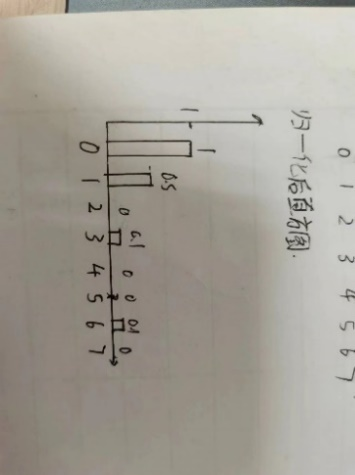 0 1 2 3 4 5 6 7
归一化后直方图.
1
1 0.5 0 0.1 0 0 0.1 0
0 1 2 3 4 5 6 7